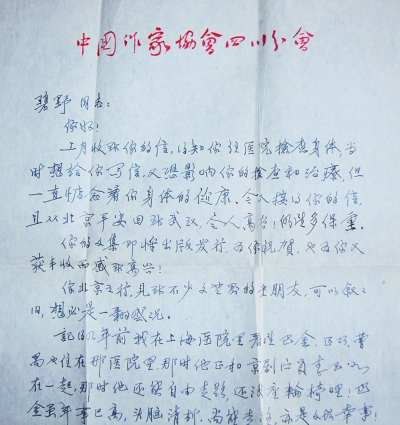 中国作家协會四川分會
碧野同志：
你好！
上月收到你的信，得知你住医院檢查身体，当
时想给你写信，又恐影响你的检查和治療，但
一直惦念着你身体的健康。今又接到你的信，
且从北京平安回到武汉，令人高兴！望多多保重。
你的文集即将出版发行，为你祝賀，也为你又
获丰收而感到高兴！
你北京之行，见到不少文艺界的老朋友，可以叙
旧，想必是一番盛况。
記得几年前我在上海医院里看望巴金，
也住在那医院里，那时他正和京剧演員
在一起，那时他还能自由走路，还没坐輪椅哩！巴
金虽年事已高，头脑清晰，尚能